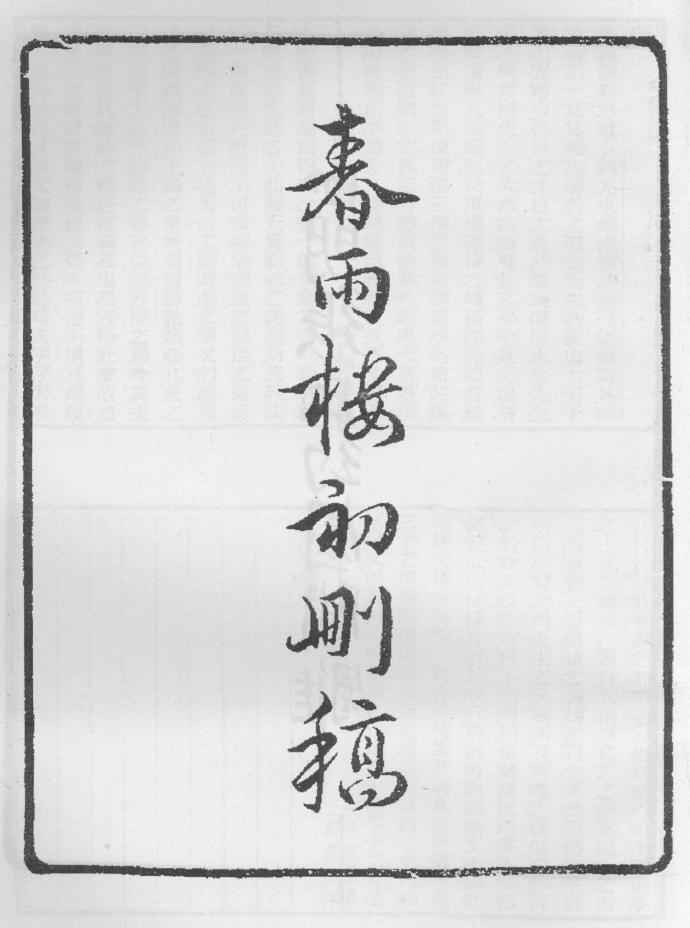 春雨樓初刪稿